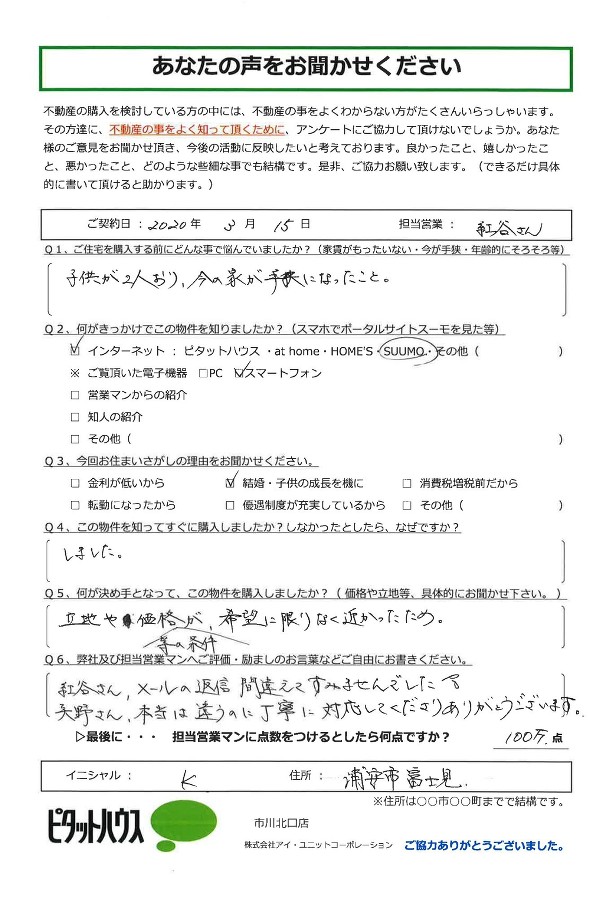 あなたの声をお聞かせください
不動産の購入を検討している方の中には、不動産の事をよくわからない方がたくさんいらっしゃいます。
その方達に、不動産の事をよく知って頂くために、アンケートにご協力して頂けないでしょうか。あなた
様のご意見をお聞かせ頂き、今後の活動に反映したいと考えております。良かったこと、嬉しかったこ
と、悪かったこと、どのような些細な事でも結構です。是非、ご協力お願い致します。（できるだけ具体
的に書いて頂けると助かります。）
ご契約日：2020年 3月 15日 担当営業： 紅谷さん
Q１、ご住宅を購入する前にどんな事で悩んでいましたか？（家賃がもったいない・今が手狭・年齢的にそろそろ等）
子供が2人おり、今の家が手狭になったこと。
Q２、何がきっかけでこの物件を知りましたか？（スマホでポータルサイトスーモを見た等）
☑ インターネット：ピタットハウス ・at home・HOME'S・SUUMO・その他（ ）
※ ご覧頂いた電子機器 □PC ☑スマートフォン
□ 営業マンからの紹介
□ 知人の紹介
□ その他（ ）
Q３、今回お住まいさがしの理由をお聞かせください。
□ 金利が低いから ☑ 結婚・子供の成長を機に □ 消費税増税前だから
□ 転勤になったから □ 優遇制度が充実しているから □ その他（ ）
Q４、この物件を知ってすぐに購入しましたか？しなかったとしたら、なぜですか？
しました。
Q５、何が決め手となって、この物件を購入しましたか？（ 価格や立地等、具体的にお聞かせ下さい。）
立地や価格が、希望に限りなく近かったため。
等の条件
Q６、弊社及び担当営業マンへご評価・励ましのお言葉などご自由にお書きください。
紅谷さん、メールの返信間違えてすみませんでした
矢野さん、本当は違うのに丁寧に対応してくださりありがとうございます。
▷最後に・・・ 担当営業マンに点数をつけるとしたら何点ですか？ 100万 点
イニシャル： K 住所： 浦安市富士見
※住所は〇〇市〇〇町までで結構です。
ピタットハウス 市川北口店
株式会社アイ・ユニットコーポレーション ご協力ありがとうございました。